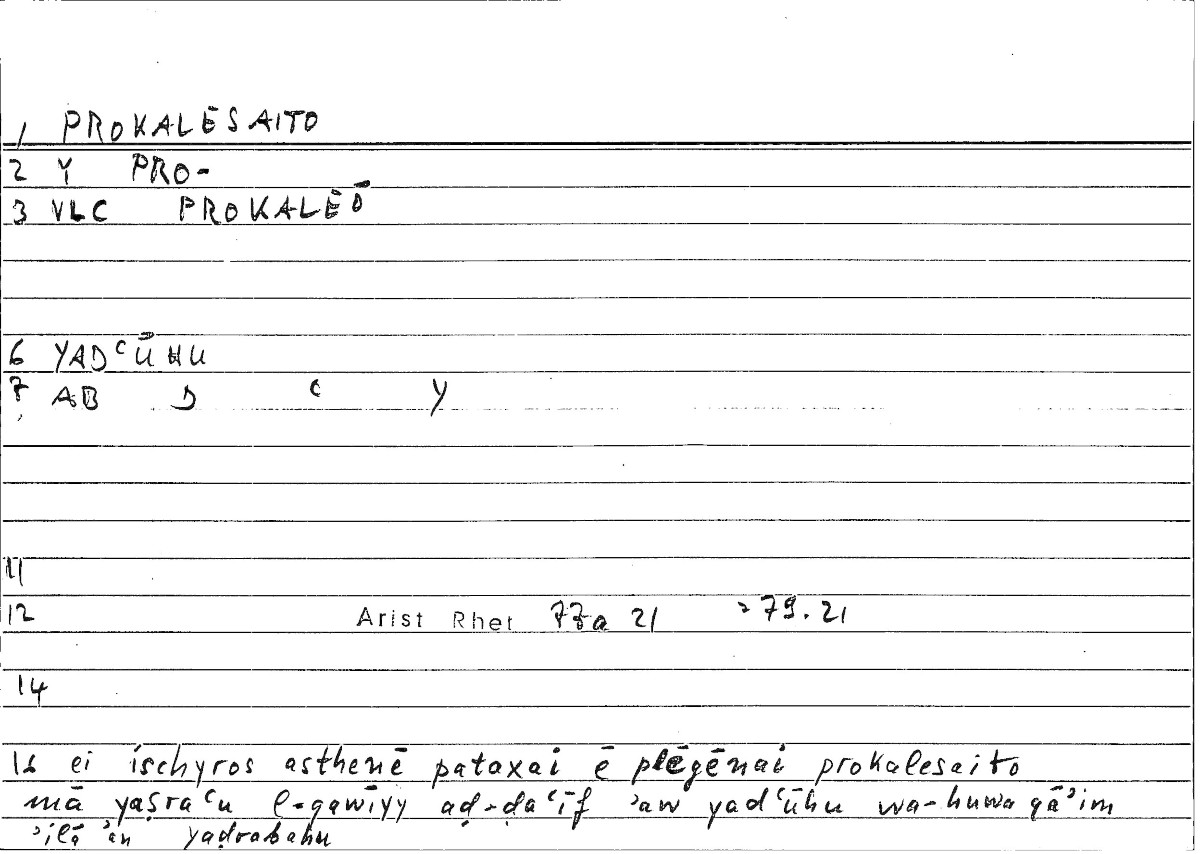 1 PROKALĒSAITO
2 Y PRO-
3 VLC PROKALĒŌ
6 YADʿŪHU
7 AB D ʿ Y
11
12 Arist Rhet 77a 21 = 79.21
14
15 ei ischyros asthenē pataxai ē plēgēnai prokalesaito
mā yaṣraʿu l-qawīyy aḍ-ḍaʿīf ʾaw yadʿūhu wa-huwa qāʾim
ʾilā ʾan yaḍrabahu